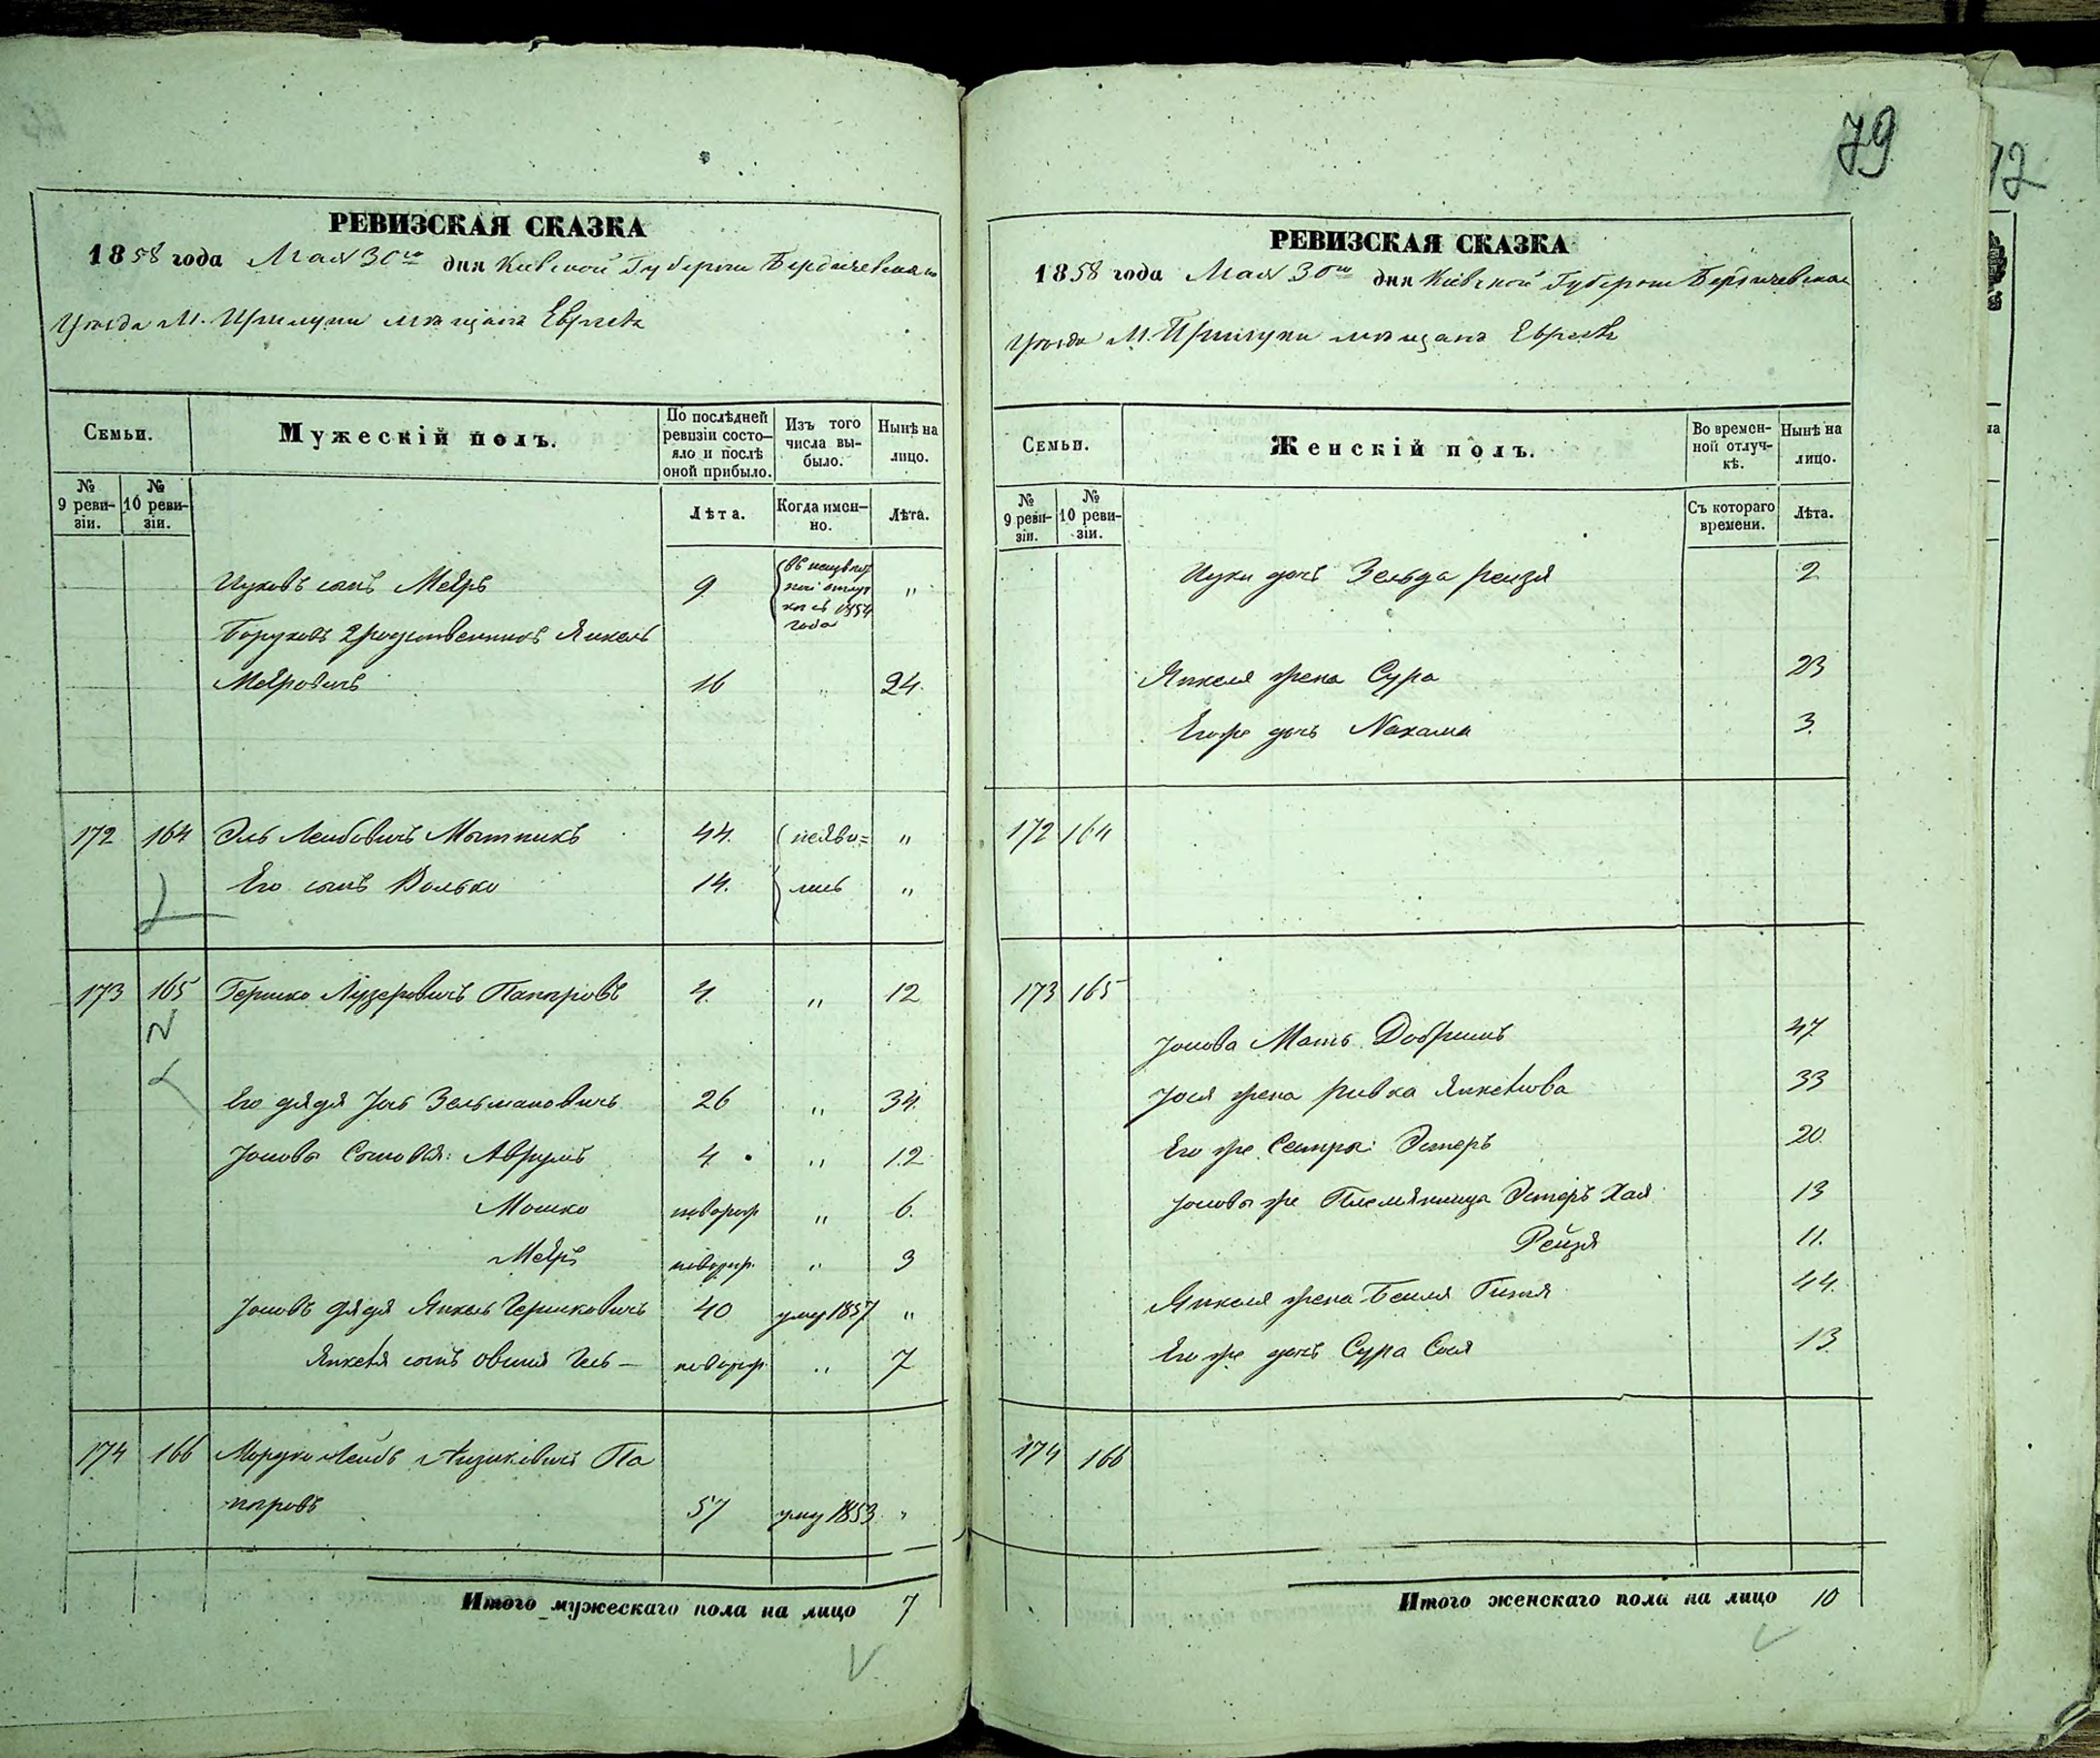 79
12
РЕВИЗСКАЯ СКАЗКА
1858 года Мая 30го дня Киевской Губернии Бердичевскаго
Уезда М. Прилуки мещанъ Евреевъ
Семьи.
Мужескій полъ.
По послѣдней ревизіи состо-
яло и послѣ
оной прибыло.
Изъ того
числа вы-
было.
Нынѣ на
лицо.
№
9 реви-
зіи.
№
10 реви-
зіи.
Лѣта.
Когда имен-
но.
Лѣта.
сынъ Меяръ 9 въ
отлуч
ке съ 1854
года "
Боруховъ родственникъ Янкель
Меяровичъ 16 " 24.
172 164 Эль Лейбовичъ Мытникъ 44. неяви= "
Его сынъ Волько 14. лись "
173 165 Гершко Лузеровичъ Папировъ 4. " 12
Его дядя Іось Зельмановичъ 26 " 34.
Іосіовы Сыновья: Аврумъ 4. " 12
Мошко новорож " 6.
Меяръ новорож. " 3
Іосіовъ дядя Янкель Гершковичъ 40 умер 1857 "
Янкеля сынъ Овшія Гесь — новорож. " 7
174 166 Мордко Лейбъ Айзиковичъ Па
пировъ 57 умер 1853 "
Итого мужескаго пола на лицо 7
РЕВИЗСКАЯ СКАЗКА
1858 года Мая 30го дня Кіевской Губерніи Бердичевскаго
Уезда М. Прилуки мещанъ Евреевъ
Семьи.
Женскій полъ.
Во времен-
ной отлуч-
кѣ.
Нынѣ на
лицо.
№
9 реви-
зіи.
№
10 реви-
зіи.
Съ котораго
времени.
Лѣта.
дочь Зельда Рейзя 2
Янкеля жена Сура 23
Егоже дочь Нахама 3.
172 164
173 165
Іосіова Мать Добришъ 47
Іося жена Ривка Янкелева 33
Его же Сестры: Эстеръ 20.
Іосіовы же Племянница Эстеръ Хая 13
Рейзя 11.
Янкеля жена Бейля Гитля 44.
Его же дочь Сура Сося 13
174 166
Итого женскаго пола на лицо 10